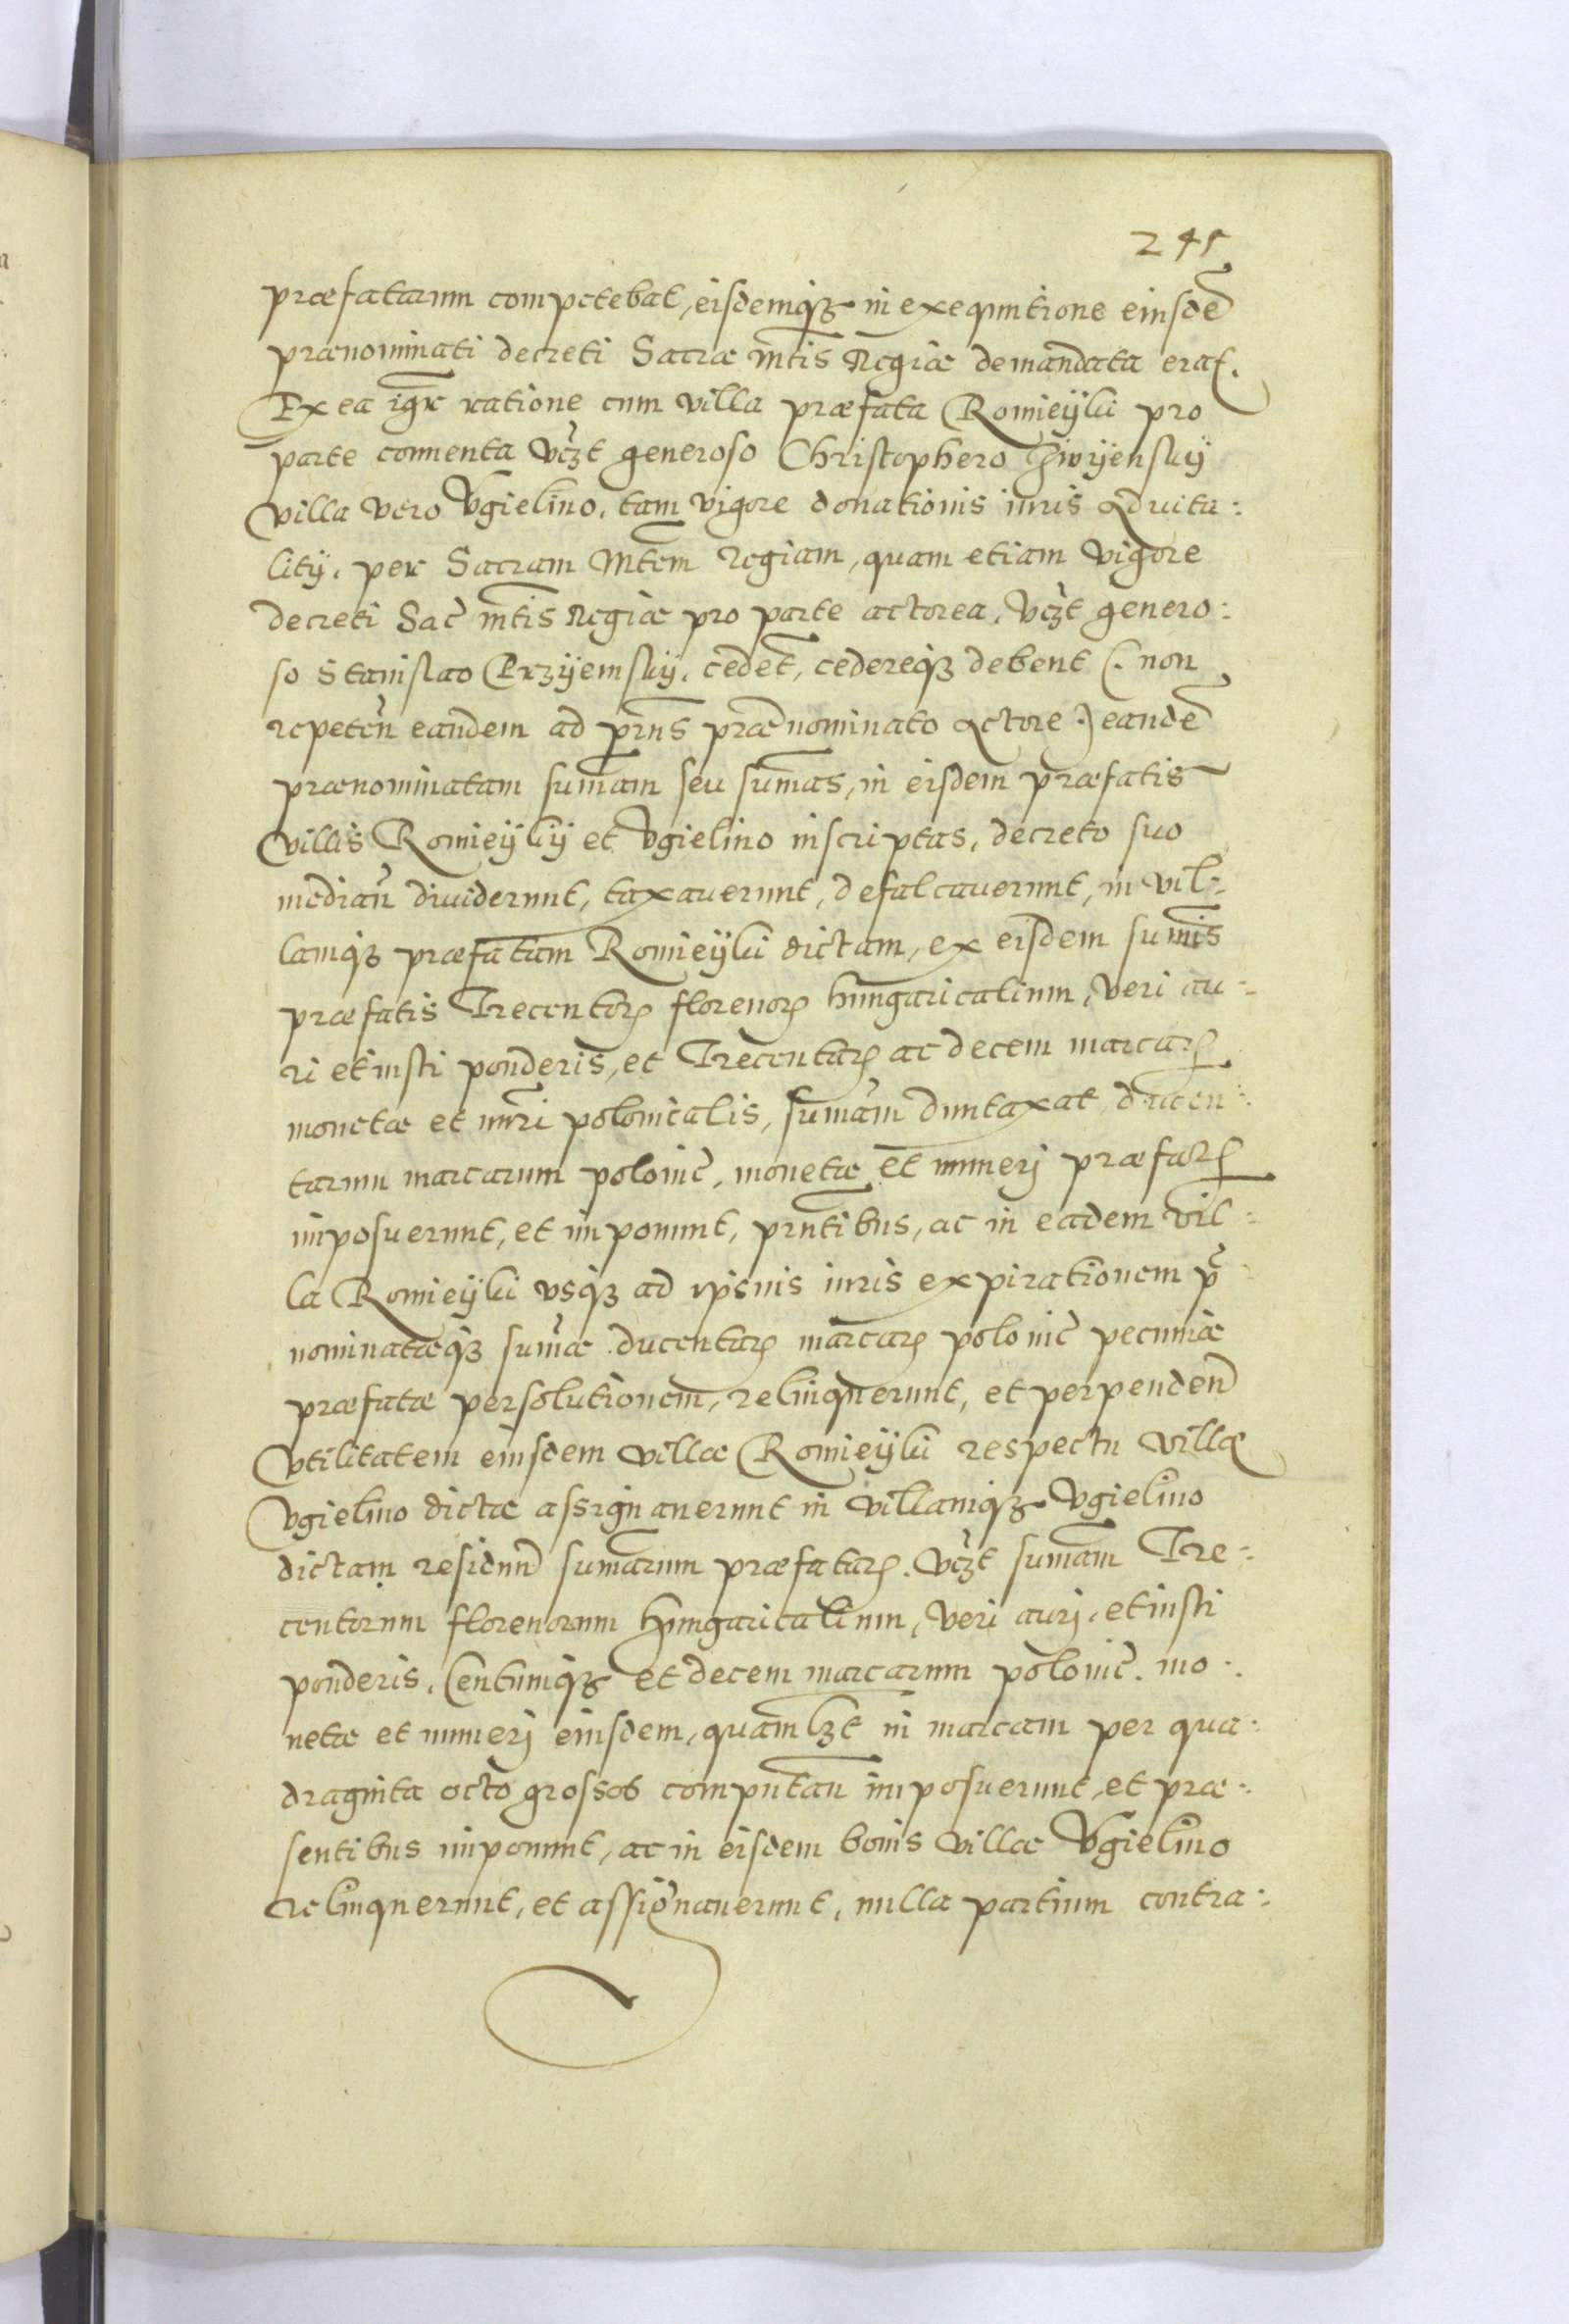 245
præfatarum competebat, eisdemqȝ in exequutione eiusdē
prænominati decreti Sacræ Mtis Regiæ demandata erat.
Ex ea igr ratione cum villa præfata Romieÿki pro
parte conuenta vcȝt generoso Christophero
villa vero Vgielino, tam vigore donationis iuris aduita:
litÿ, per Sacram Mtem Regiam, quam etiam vigore
decreti Sac̄ Mtis Regiæ pro parte actorea, vcȝt genero:
so Stanislao Krzÿemskÿ, cedet, cedereqȝ debent (: non
repeteñ eandem ad prñs prænominato Actore :) eandē
prænominatam sum̄am seu sum̄as, in eisdem præfatis
villis Romieÿkÿ et Vgielino inscriptas, decreto suo
mediañ diuiderunt, taxauerunt, defalcauerunt, in vil:
lamqȝ præfatam Romieÿki dictam, ex eisdem sum̄is
præfatis Trecentorꝝ florenorꝝ hungaricalium, veri au:
ri et iusti ponderis, et Trecentarꝝ ac decem marcarꝝ
monetæ et nūri polonicalis, sum̄am duntaxat ducen:
tarum marcarum polonic̄, monetæ et numerj præfatꝝ
imposuerunt, et imponunt, prñtibus, ac in eadem vil:
la Romieÿki vsqȝ ad ipsius iuris expirationem p̄
nominatæqȝ sum̄æ ducentarꝝ marcarꝝ polonic̄ pecuniæ
præfatæ persolutionem, relinquerunt, et perpendeñ
vtilitatem eiusdem villæ Romieÿki respectu villæ
Vgielino dictæ assignauerunt in villamqȝ Vgielino
dictam residuū sum̄arum præfatarꝝ. vcȝt sum̄am Tre:
centorum florenorum Hungaricalium, veri aurj, et iusti
ponderis, Centumqȝ et decem marcarum polonic̄. mo:
netæ et numerj eiusdem, quamlȝt in marcam per qua:
draginta octo grossos computañ imposuerunt, et præ:
sentibus imponunt, ac in eisdem bonis villæ Vgielino
relinquerunt, et assignauerunt, nulla partium contra: